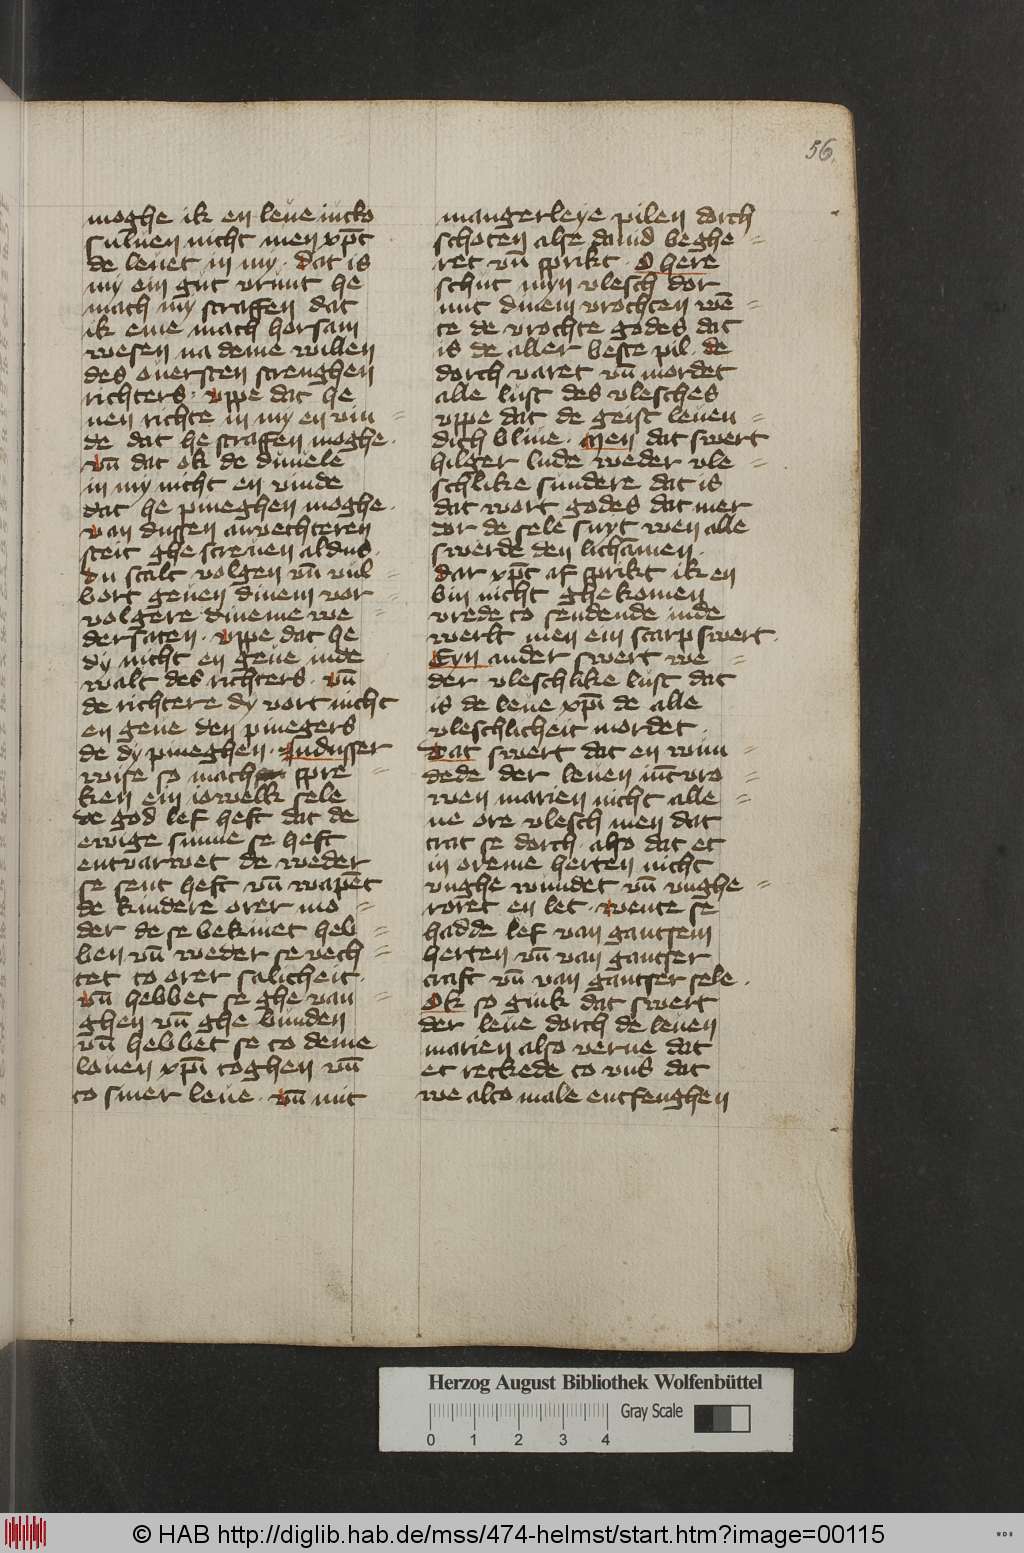 56
moghe ik en leue iucko
suluen nicht men xp̄c
de leuet in my · dat is
my ein gut vrunt he
mach my straffen dat
ik eme mach horsam
wesen na deme willen
des ouersten strenghen
richters · vppe dat he
nen richte in my en vin=
de dat he straffen moghe ·
vn̄ dat ok de duuele
in my nicht en vinde
dat he pineghen moghe ·
van dussen anvechteren
steit ghe screuen aldus ·
du scalt volgen vn̄ vul=
bort geuen dinem vor=
volgere dineme we=
dersaten · vppe dat he
dy nicht en geue inde
walt des richters · vn̄
de richtere dy vort nicht
en geue den pinegers
de dy pineghen · Indusser
wise so mach spre=
ken ein iowelk sele
de god lef heft dat de
ewige sunne se heft
entvarwet de weder
se sent heft vn̄ wapēt
de kindere orer mo=
der de se bekinet heb=
ben vn̄ weder se vech=
tet to orer salicheit ·
vn̄ hebbet se ghe van=
ghen vn̄ ghe bunden
vn̄ hebbet se to deme
louen xp̄i toghen vn̄
to siner leue · vn̄ mit
mangerleye pilen dorch
schoten alse dauid beghe=
ret vn̄ sprikt · O here
schut myn vlesch dor
mit dinem vrochten wē=
te de vrochte godes dat
is de aller beste pil · de
dorch varet vn̄ mordet
alle lust des vlesches
vppe dat de geist leuen=
dich bliue · Men dat swert
hilger lude weder vle=
schlike sundere dat is
dat wort godes dat mer
dor de sele snyt wen alle
swerde den lichamen ·
dar xp̄c af sprikt ik en
bin nicht ghekomen
vrede to sendende inde
werlt men ein scarp swert ·
Eyn ander swert we=
der vleschlike lust dat
is de leue xp̄i de alle
vleschlicheit mordet ·
Dat swert dat en wun=
dede der leuen iūcvro=
wen marien nicht alle=
ne ore vlesch men dat
trat se dorch · also dat et
in oreme herten nicht
vnghe wundet vn̄ vnghe=
roret en let · wente se
hadde lef van gantsem
herten vn̄ van gantser
craft vn̄ van gantser sele ·
Ok so gink dat swert
der leue dorch de leuen
marien also verne dat
et reckede to vns dat
we alto male entfenghen
Herzog August Bibliothek Wolfenbüttel
Gray Scale
0 1 2 3 4
© HAB http://diglib.hab.de/mss/474-helmst/start.htm?image=00115